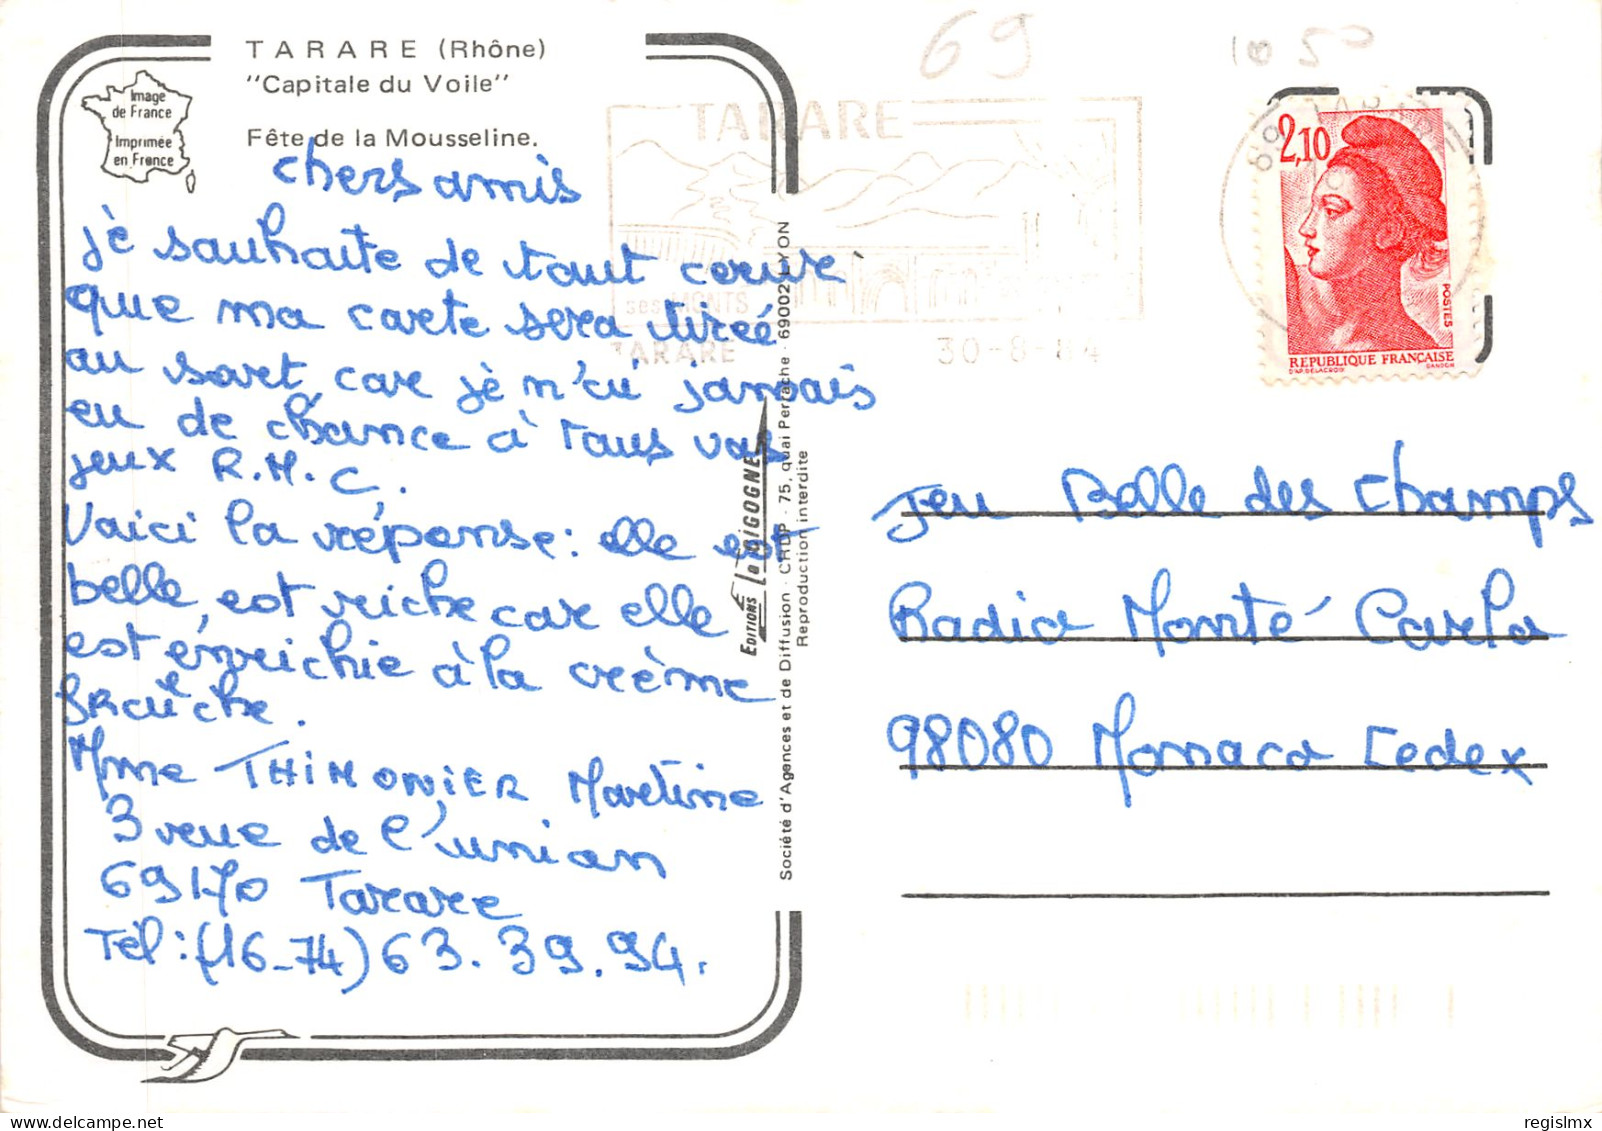 TARARE (Rhône)
"Capitale du Voile"
Fête de la Mousseline.
Image
de France
Imprimée
en France
chers amis
jè souhaite de tout coeur
que ma carte sera tireé
au sort, car jè n'ai jamais
eu de chance à tous vos
jeux R.M.C.
Voici la réponse: elle est
belle, est riche car elle
est énrichie à la crème
fraîche.
Mme THIMONIER Martine
3 rue de l'union
69170 Tarare
Tél: (16-74) 63.39.94.
EDITIONS La CIGOGNE
Société d'Agences et de Diffusion - CRDP - 75, quai Perrache - 69002 LYON
Reproduction interdite
69
1050
TARARE
ses MONTS
TARARE
30-8-84
69 TARARE
2,10
POSTES
REPUBLIQUE FRANÇAISE
D'AP. DELACROIX
GANDON
Jeu Belle des Champs
Radio Monté Carlo
98080 Monaco Cedex
regislmx